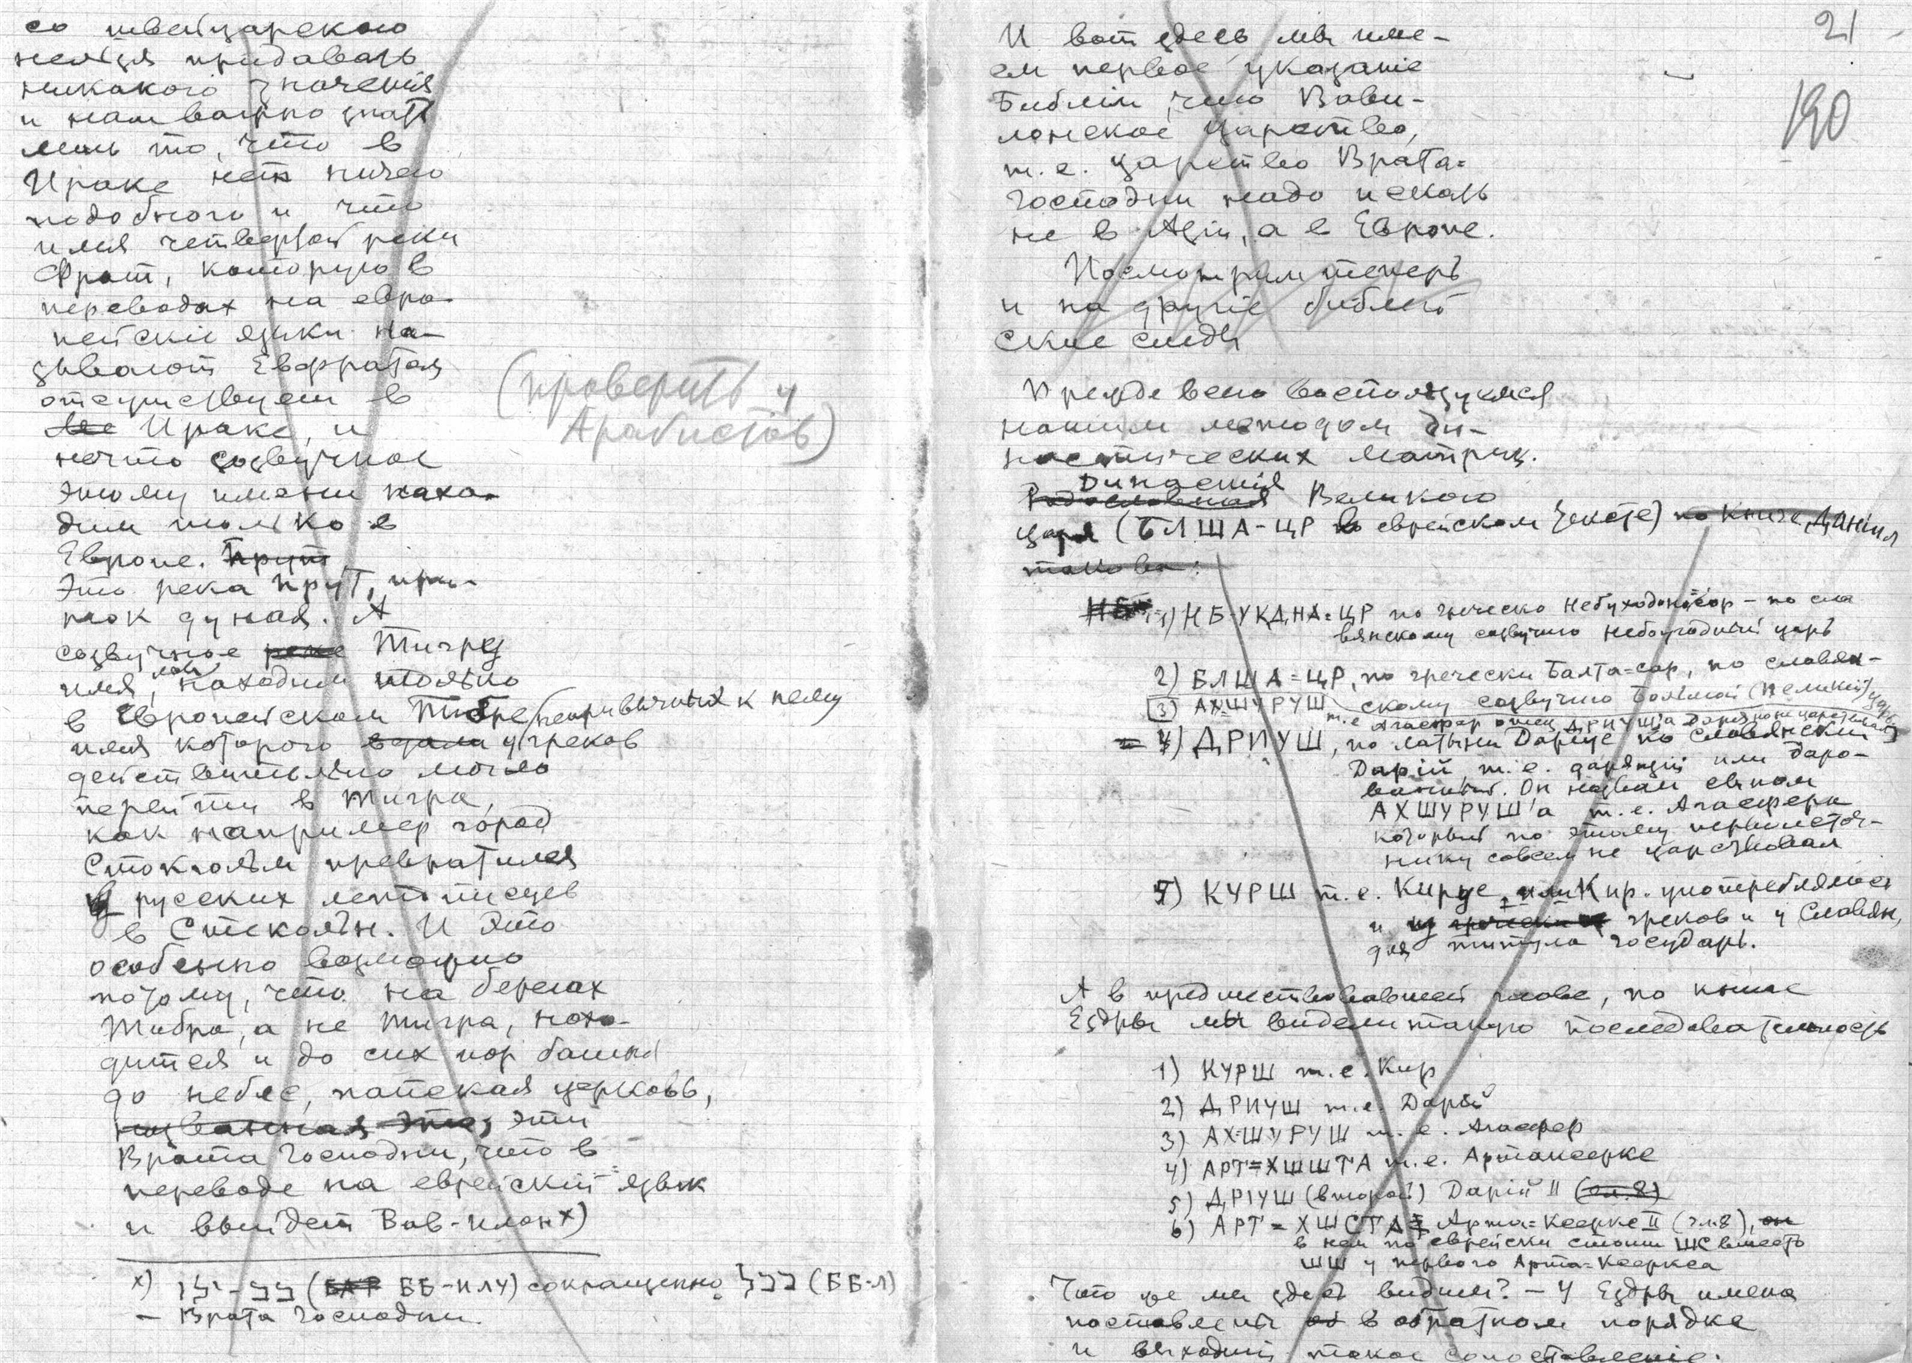 со швейцарскою
нельзя придавать
никакого значения
и нам важно знать
лишь то, что в
Ираке нет ничего
подобного и что
имя четвертой реки
Фрат, которую в
переводах на евро-
пейскіе языки на-
зывают Евфратом
отсутствует в
Ираке, и
нечто созвучное
этому имени нахо-
дим только в
Европе. Прут
Это река Прут, при-
ток Дуная. А
созвучное реке Тигру
имя, находим только
в Европейском Тибре (непривычных к нему
имя которого у греков
действительно могло
перейти в Тигра,
как например город
Стокгольм превратился
у русских летописцев
в Стекольн. И это
особенно возможно
потому, что на берегах
Тибра, а не Тигра, нахо-
дится и до сих пор башня
до небес, папская церковь,
названная эта, эти
Врата Господни, что в
переводе на еврейскій язык
и выйдет Вав-илон х)
х) בב-ילו (БАР ББ-ИЛУ) сокращенно בבל (ББ-Л)
— Врата Господни.
(проверить у
Арабистов)
21
190
И вот здесь мы име-
ем первое указаніе
Библіи, что Вави-
лонское царство,
т.е. царство Врата-
Господни надо искать
не в Азіи, а в Европе.
Посмотрим теперь
и на другіе библей
ские следы
Прежде всего воспользуемся
нашим методом ди-
настических матриц.
Династія
Родословная Великого
царя (БЛША-ЦР в еврейском тексте) по книге Даніила
такова:
НБ 1) НБ-УКДНА=ЦР по гречески Небуходоносор — по сла
вянскому созвучию небоугодный царь
2) БЛША=ЦР, по гречески Балта-сар, по славян-
скому созвучию Большой (Великий) царь
3) АХШУРУШ
т.е. Агасфер отец ДРИУША
= 4) ДРИУШ, по латыни Дариус по славянски
Дарій, т.е. дарящій или даро-
ванный. Он назван сыном
АХШУРУШ'а т.е. Агасфера
который по этому первоисточ-
нику совсем не царствовал
5) КУРШ т.е. Кирус, или Кир. употреблялось
и у греков и у Славян,
для титула государь.
А в предшествовавшей главе, по книге
Ездры мы видели такую последовательность
1) КУРШ т.е. Кир
2) ДРИУШ т.е. Дарій
3) АХ-ШУРУШ т.е. Агасфер
4) АРТ=ХШШТА т.е. Артаксеркс
5) ДРІУШ (второй) Дарій II (гл. 8)
6) АРТ=ХШСТА Арта=Ксеркс II (гл. 8), он
в нем по еврейски стоит ШС вместо
ШШ у первого Арта=Ксеркса
Что же мы здесь видим? — У Ездры имена
поставлены в обратном порядке
и выходит такое сопоставленіе: